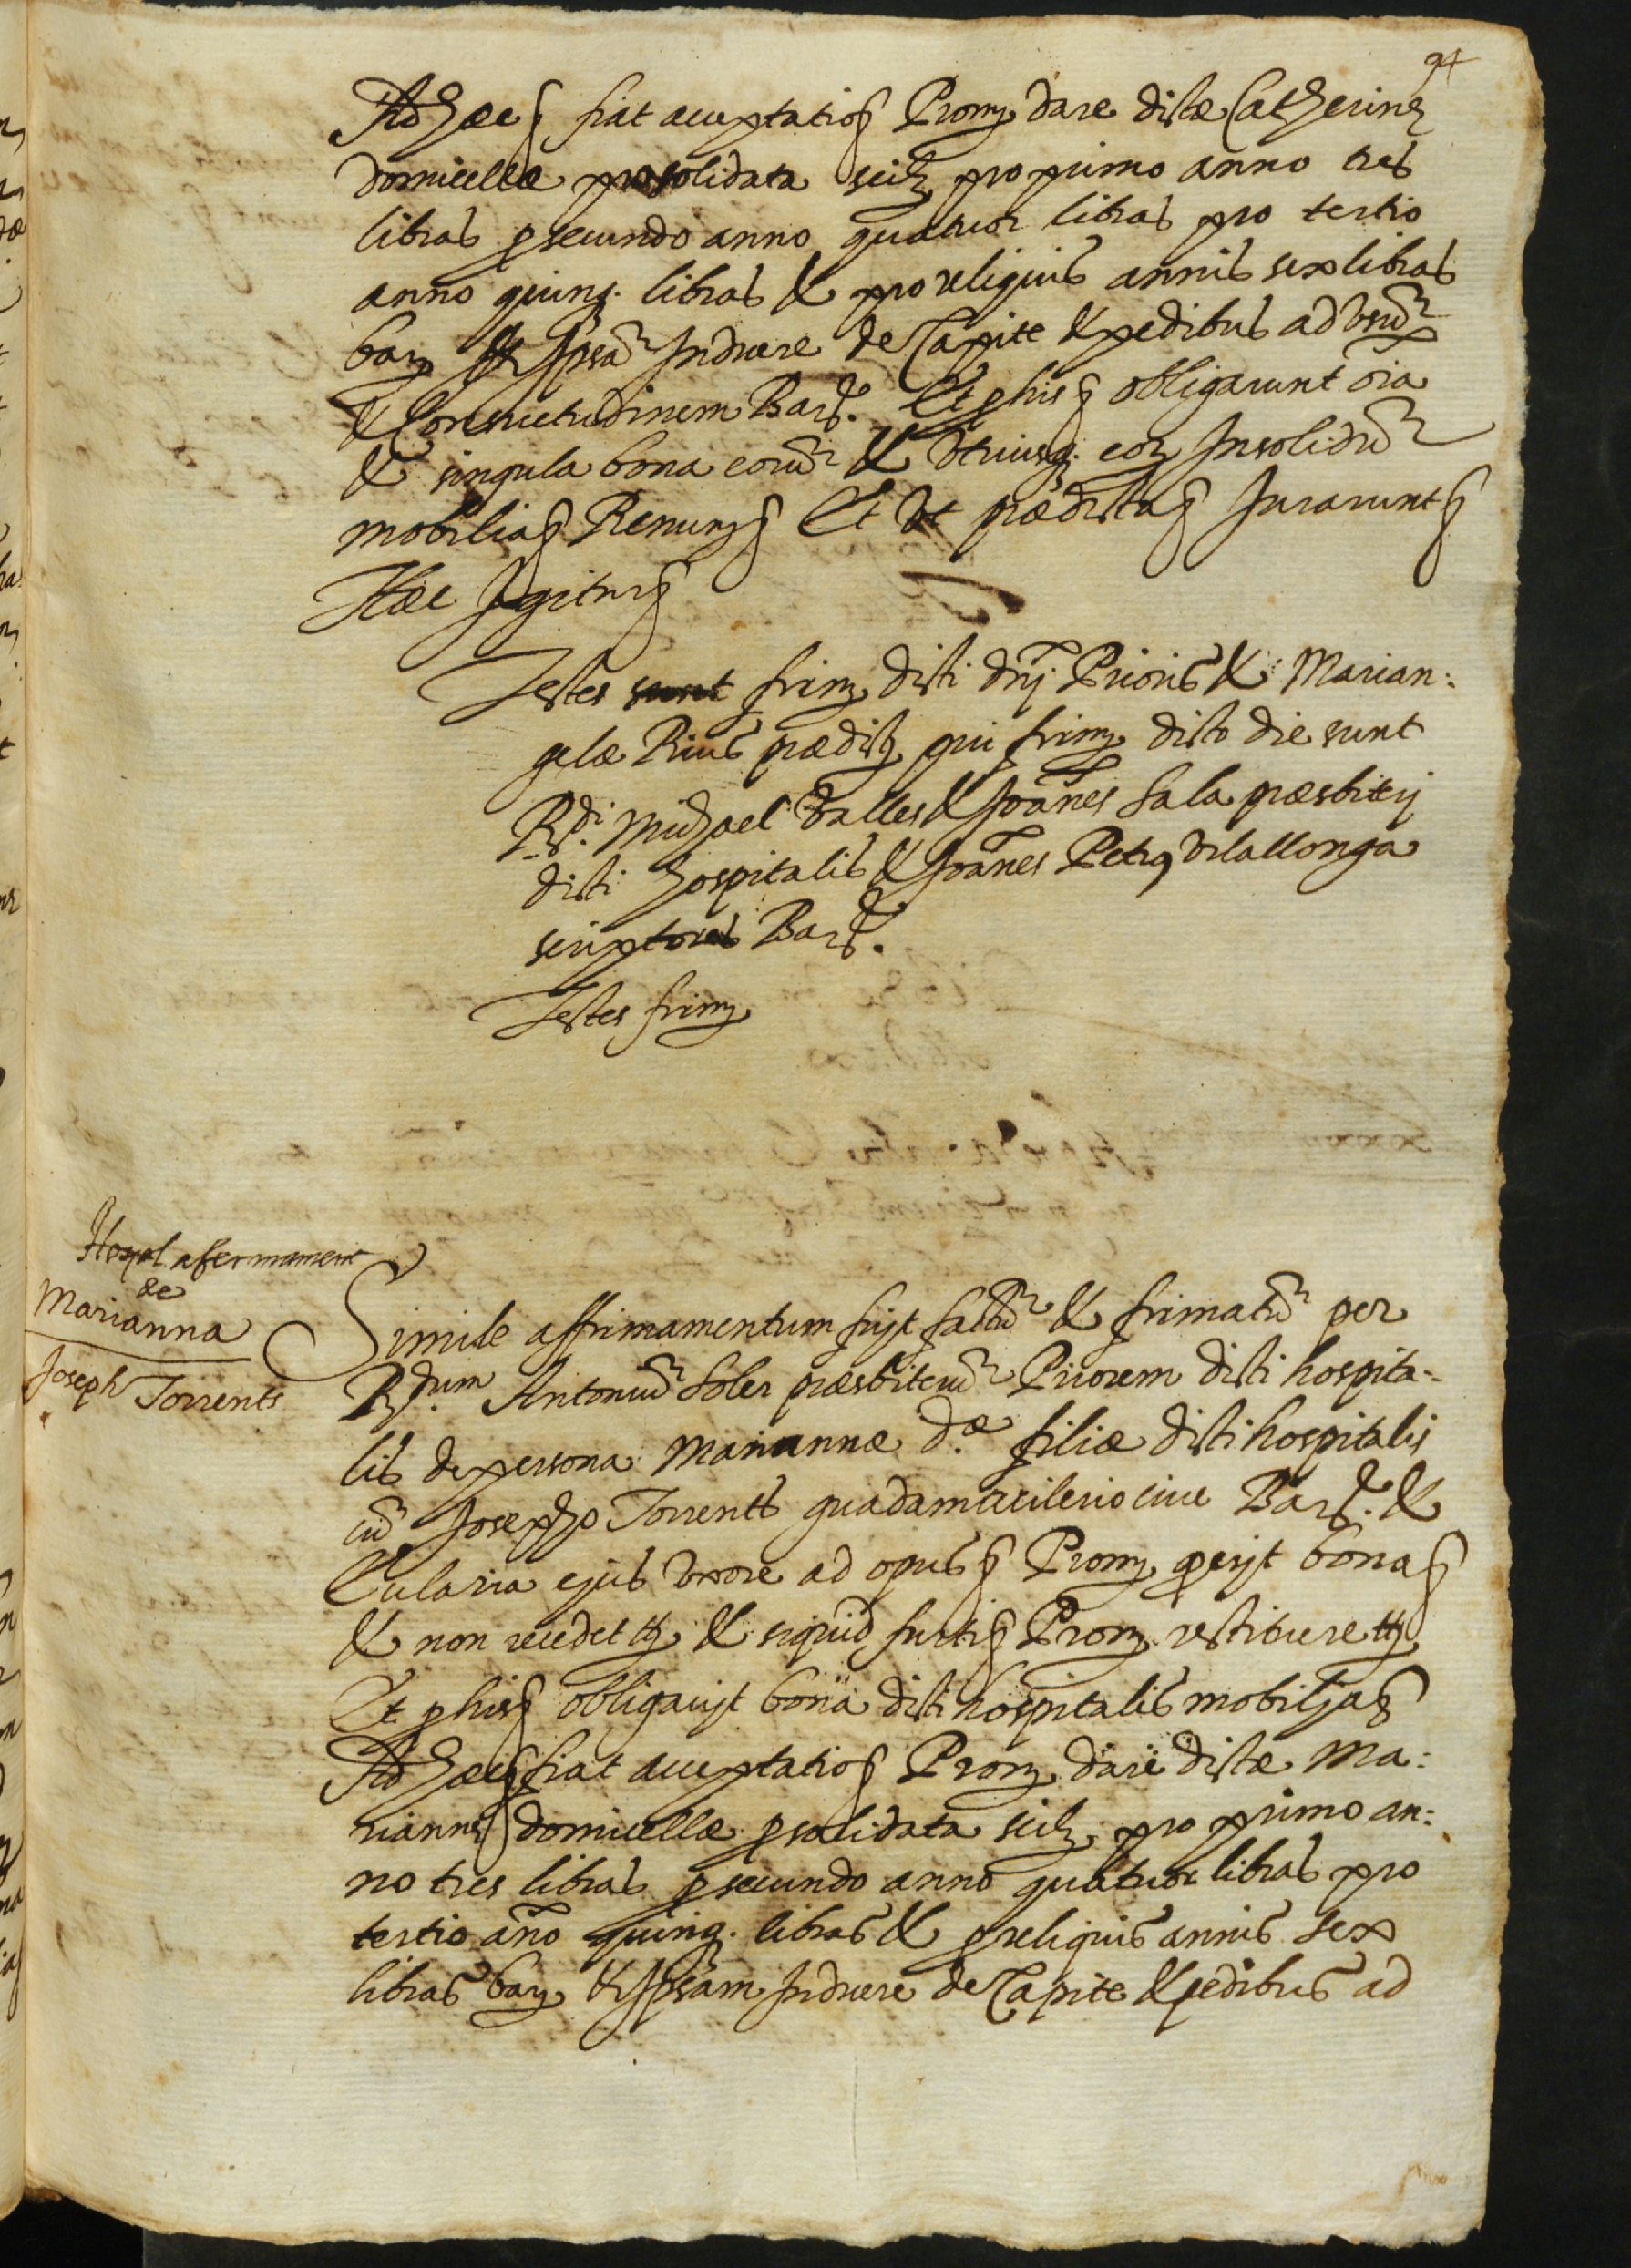 94
Ad hæc § fiat acceptatio § Prom. dare dictæ Catherinæ
domicellæ pro solidata scilt. pro primo anno tres
libras p secundo anno quatuor libras pro tertio
anno quinq. libras & pro reliquis annis sex libras
bar. & Ipsā Induere de Capite & pedibus ad usū
& Consuetudinem Barᵉ. Et p his § obligarunt oīa
& singula bona eorū & utriusq. eor. Insolidū
mobilia § Renun. § Et ut prædicta § Jurarunt §
Hæc Igitur §
Testes sunt firm. dicti dnj. Prioris & Marian:
gelæ Rius prædict. qui firm. dicto die sunt
R.ᵈⁱ Michael Valles & Joānes Sala præsbiterj
dicti hospitalis & Joānes Petrꝰ Vilallonga
scriptores Barᵉ.
Testes firm.
Hospal afermament
de
Marianna
Joseph Torrents
Simile affirmamentum fujt factū & firmatū per
R.ᵈᵘᵐ Antoniū Soler præsbiterū Priorem dicti hospita-
lis de persona Mariannæ d.ᵃᵉ filiæ dicti hospitalis
cū Josepho Torrents guadamacilerio cive Barᵉ. &
Eularia ejus uxore ad opus § Prom. q̄ erjt bona §
& non recedet ett. & siquid furti § Prom. restituere ett.
Et p his § obligavjt bona dicti hospitalis mobilja §
Ad hæc § fiat acceptatio § Prom. dare dictæ Ma:
riannæ domicellæ p solidata scilt. pro primo an:
no tres libras p secundo anno quatuor libras pro
tertio año quinq. libras & p reliquis annis sex
libras bar. & Ipsam Induere de Capite & pedibus ad